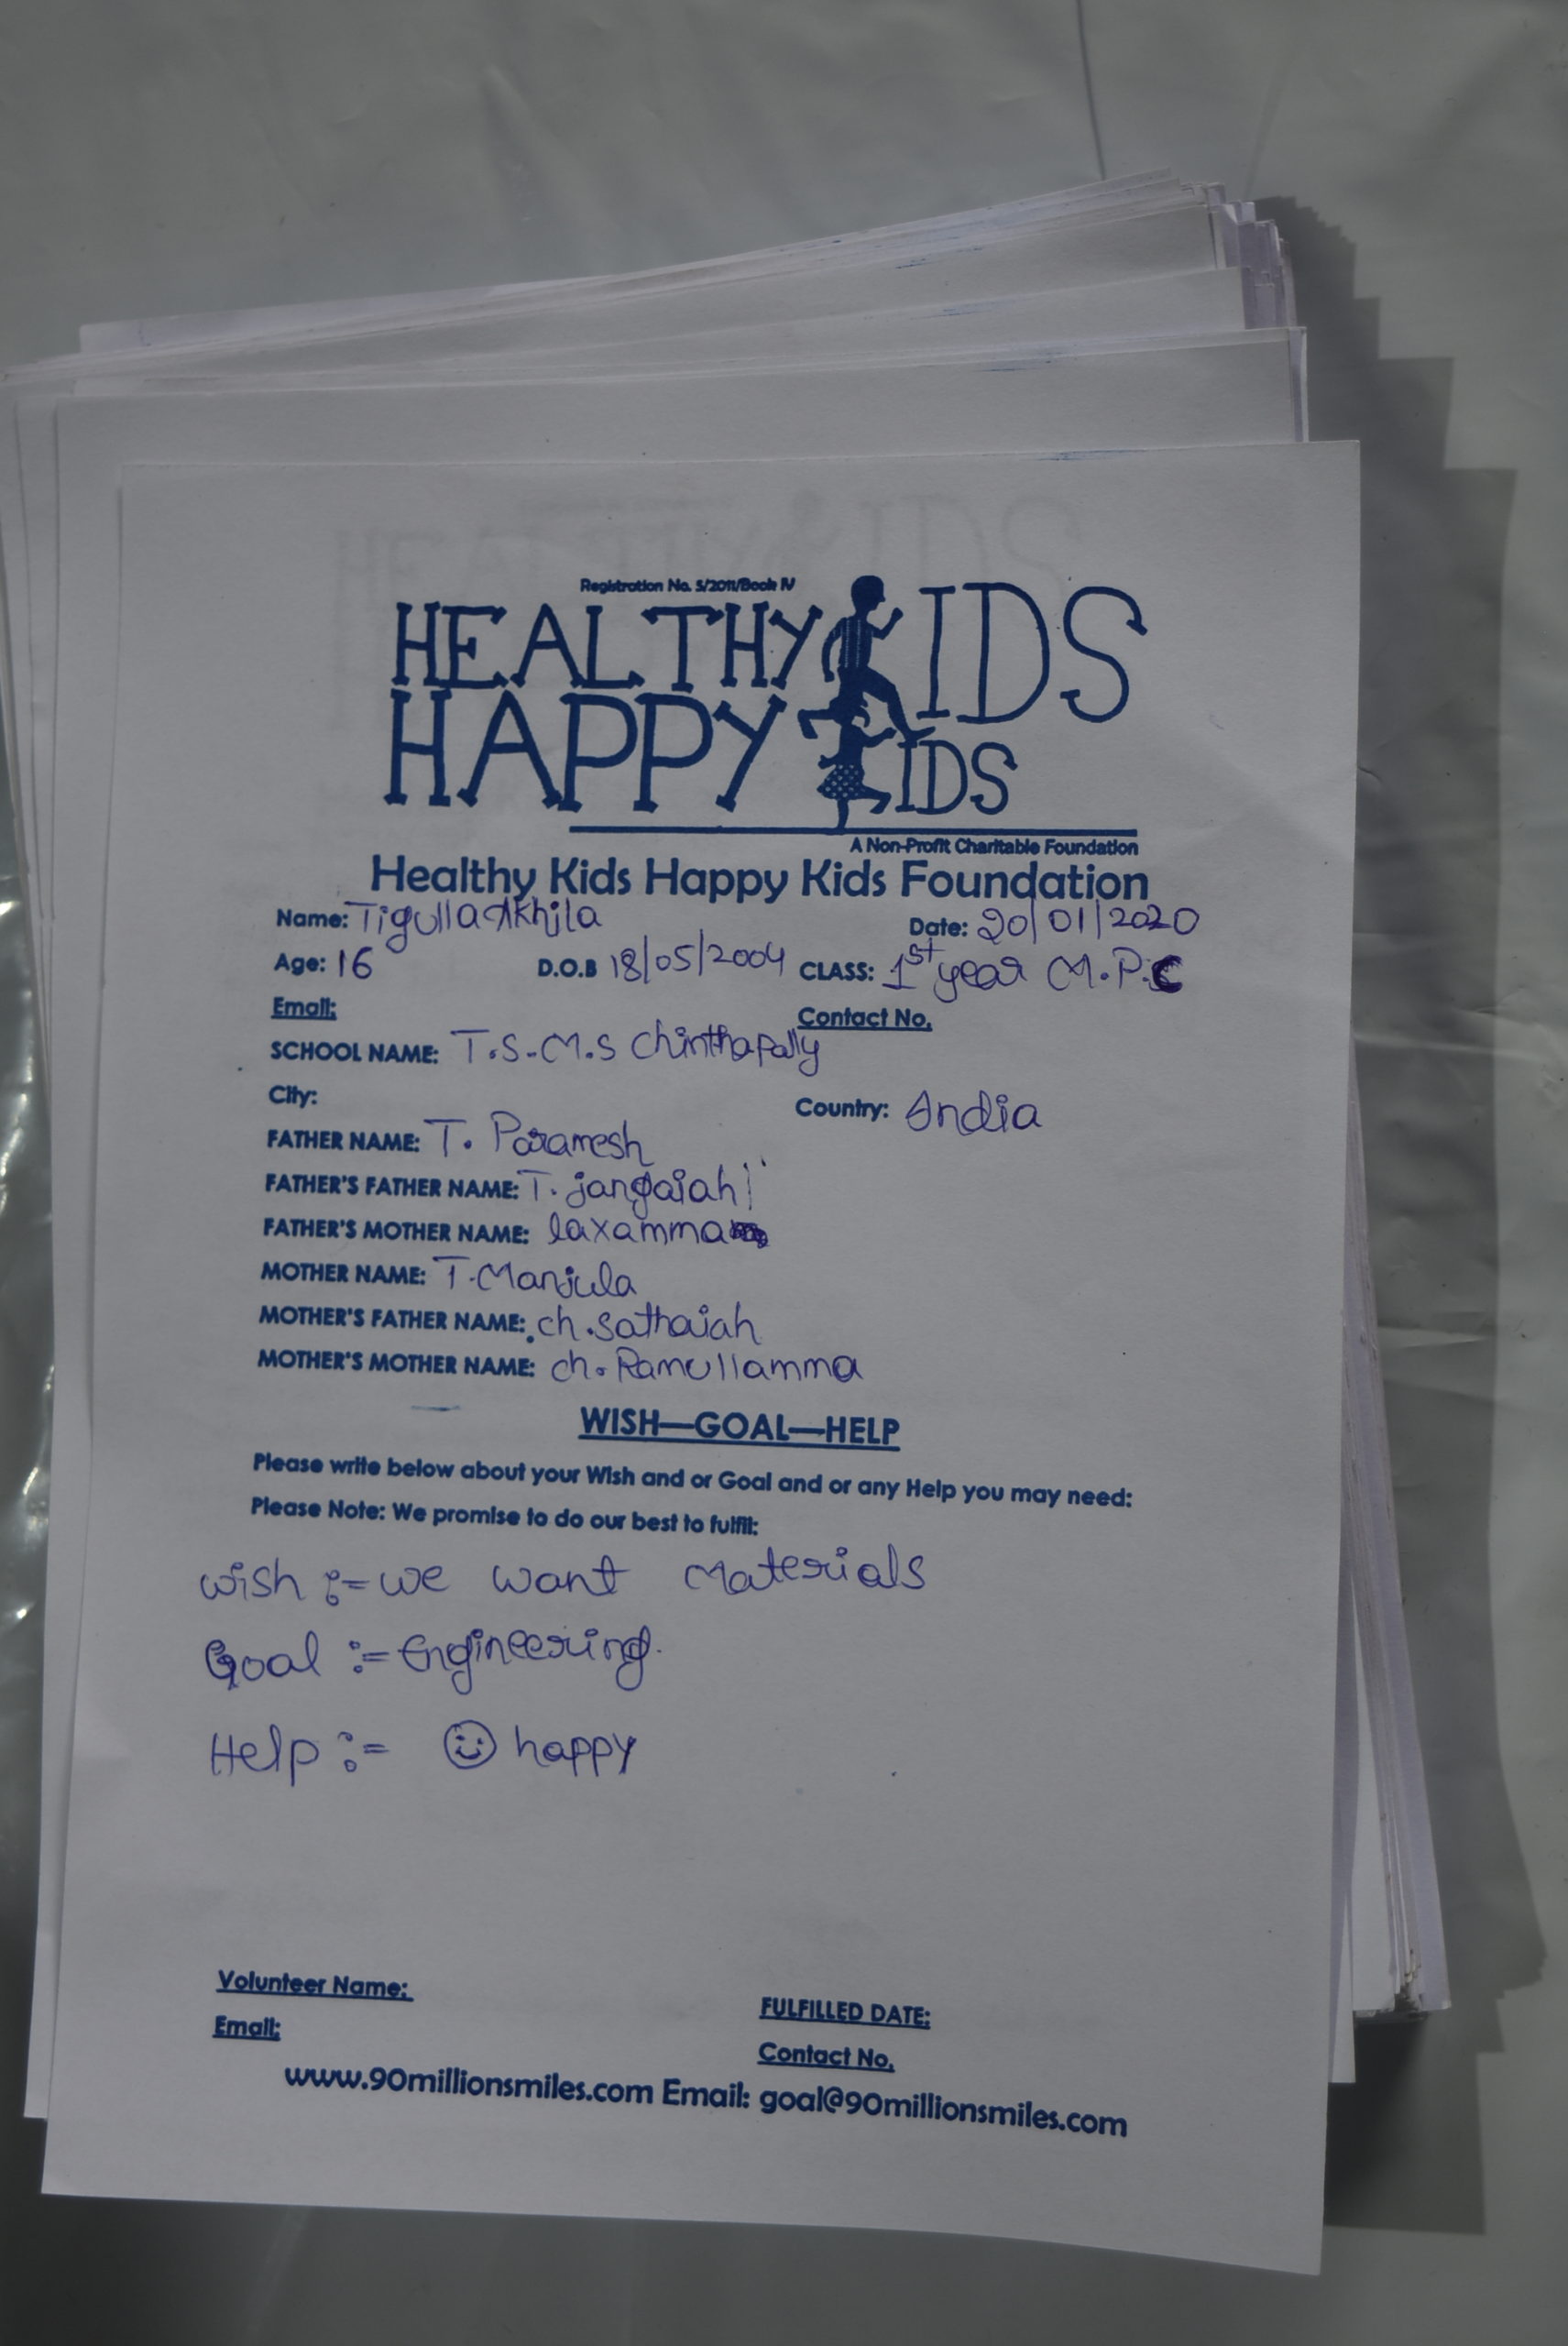 Registration No. 5/2011/Book IV
HEALTHY KIDS
HAPPY KIDS
A Non-Profit Charitable Foundation
Healthy Kids Happy Kids Foundation
Name: Tigulla Akhila Date: 20/01/2020
Age: 16 D.O.B 18/05/2004 CLASS: 1st year M.P.C
Email: Contact No.
SCHOOL NAME: T.S-M.S Chinthapally
City: Country: India
FATHER NAME: T. Paramesh
FATHER'S FATHER NAME: T. jangaiah
FATHER'S MOTHER NAME: laxamma
MOTHER NAME: T.Manjula
MOTHER'S FATHER NAME: ch.sathaiah
MOTHER'S MOTHER NAME: ch. Ramullamma
WISH—GOAL—HELP
Please write below about your Wish and or Goal and or any Help you may need:
Please Note: We promise to do our best to fulfil:
wish :- we want Materials
Goal :- Engineering.
Help :- ☺ happy
Volunteer Name: FULFILLED DATE:
Email: Contact No.
www.90millionsmiles.com Email: goal@90millionsmiles.com